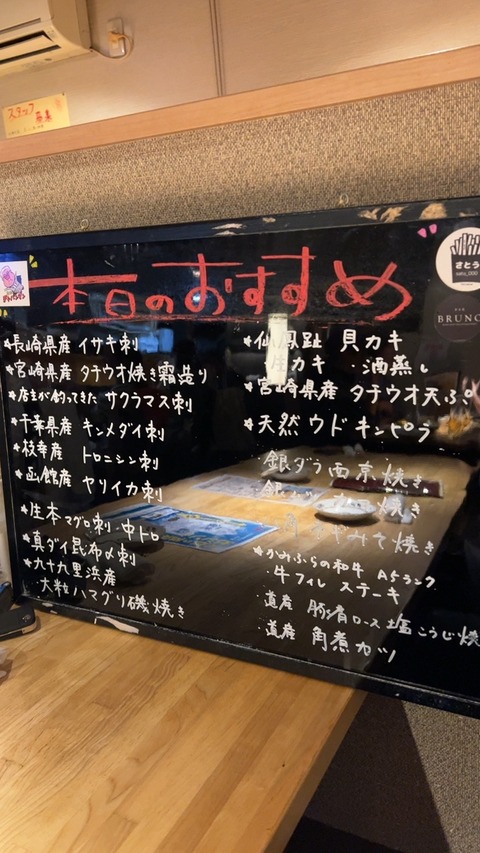 スタッフ
募集
本日のおすすめ
さとう
BRUNO
*長崎県産 イサキ刺
*宮崎県産 タチウオ焼き霜造り
*店主が釣ってきた サクラマス刺
*千葉県産 キンメダイ刺
*枝幸産 トロニシン刺
*函館産 ヤリイカ刺
*生本マグロ刺・中トロ
*真ダイ昆布〆刺
*九十九里浜産
大粒ハマグリ磯焼き
*仙鳳趾 貝カキ
生カキ ・酒蒸し
*宮崎県産 タチウオ天ぷら
*天然 ウドキンピラ
・銀ダラ西京焼き
焼き
みそ焼き
*かみふらの和牛 A5ランク
・牛フィレ ステーキ
・道産 豚肩ロース塩こうじ焼
・道産 角煮カツ